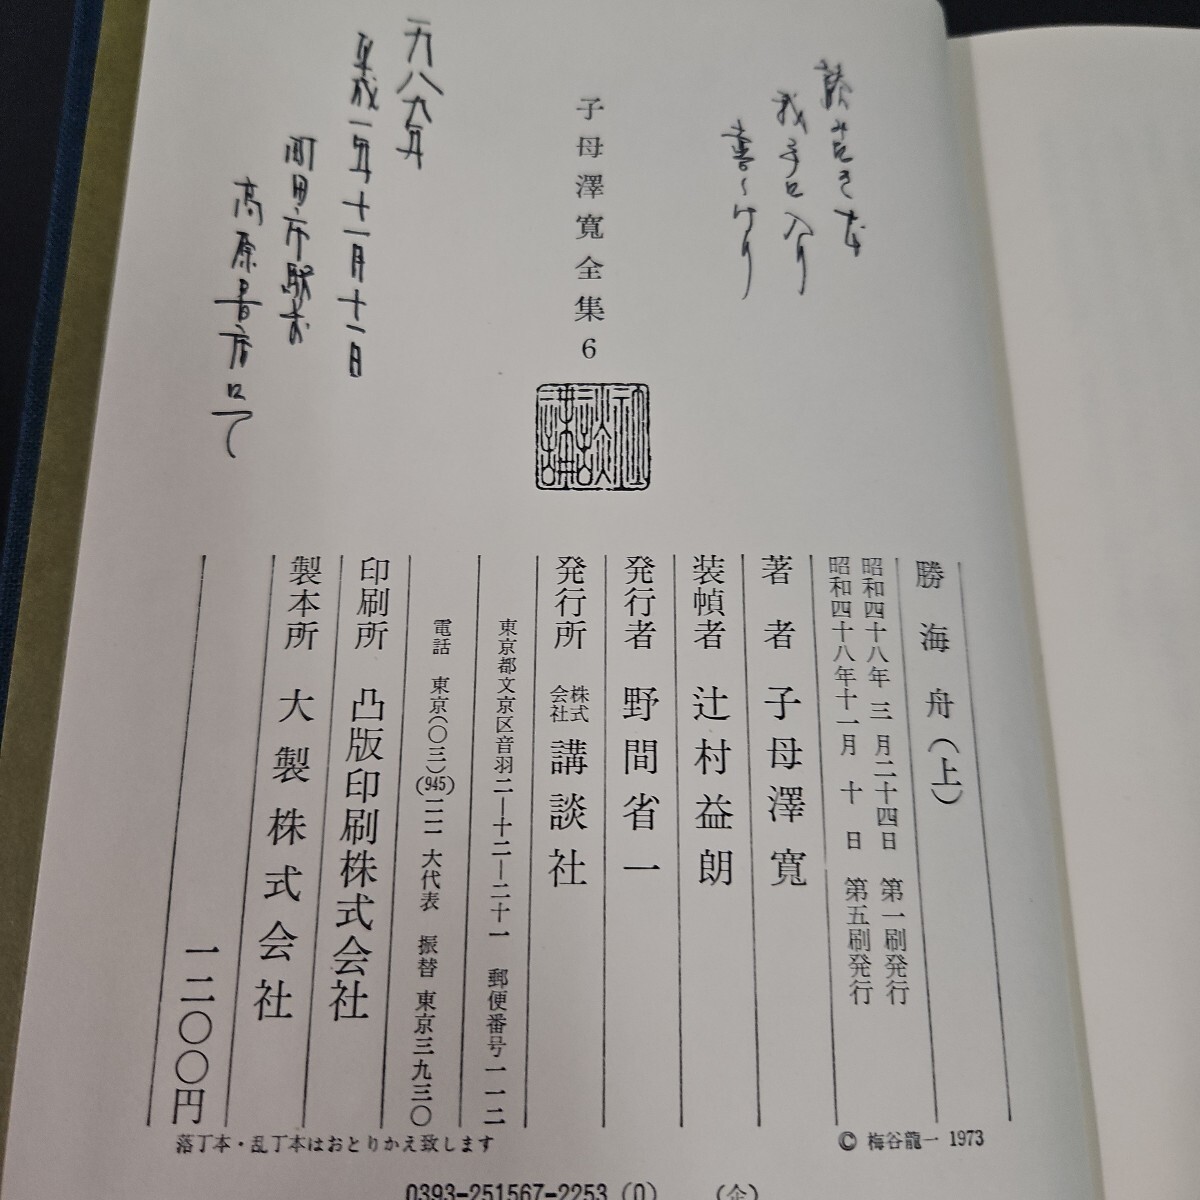 我手に入り
喜びけり
子母澤寛全集6
講談社
一九八九年
平成一年十一月十一日
町田市駅前
高原書店にて
勝海舟(上)
昭和四十八年三月二十四日 第一刷発行
昭和四十八年十一月十日 第五刷発行
著者 子母澤寛
装幀者 辻村益朗
発行者 野間省一
発行所 株式会社 講談社
東京都文京区音羽二—十二—二十一 郵便番号一一二
電話 東京(〇三)(945)一一一一 大代表 振替 東京三九三〇
印刷所 凸版印刷株式会社
製本所 大製株式会社
一二〇〇円
落丁本・乱丁本はおとりかえ致します
© 梅谷龍一 1973
0393-251567-2253 (0) (企)